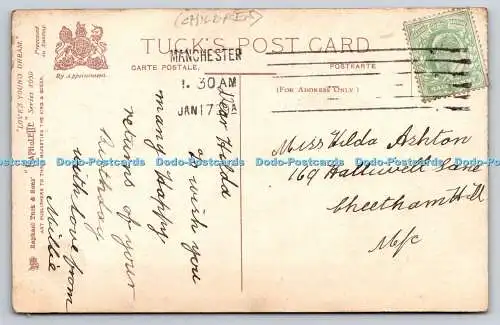 (CHILDREN)
TUCK'S POST CARD
CARTE POSTALE
POSTKARTE
By Appointment.
(FOR ADDRESS ONLY.)
MANCHESTER
1. 30 AM
JAN 17
Dear Hilda
I wish you
many happy
returns of your
Birthday
with love from
Millie
Miss Hilda Ashton
169 Halliwell Lane
Cheetham Hill
M/c
"LOVE'S YOUNG DREAM."
Raphael Tuck & Sons'
Series 1039
ART PUBLISHERS TO THEIR MAJESTIES THE KING & QUEEN.
Bdb-Postcards Bdb-Postcards Bdb-Postcards Bdb-Postcards Bdb-Postcards